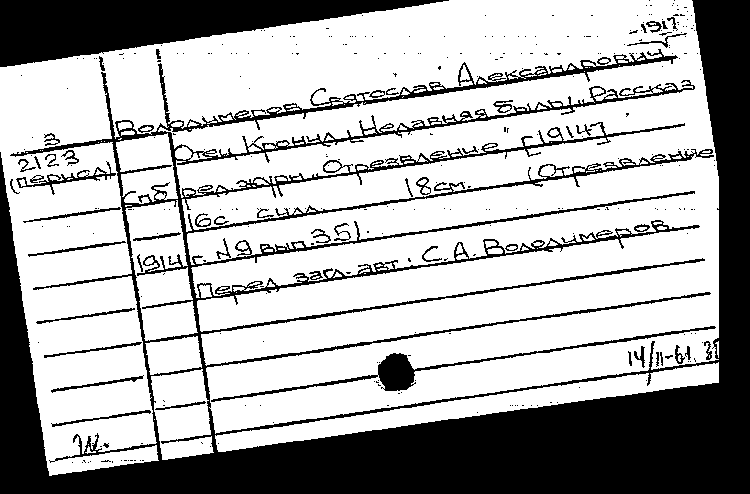 -1917
Володимеров, Святослав Александрович.
З
2123
(период)
Отец Кронид. [Недавняя быль]. Рассказ
Спб, ред. журн. „Отрезвление", [1914].
16с. с илл. 18см. (Отрезвление
1914 г. №9, вып. 35).
Перед загл. авт.: С.А. Володимеров.
14/II-61.